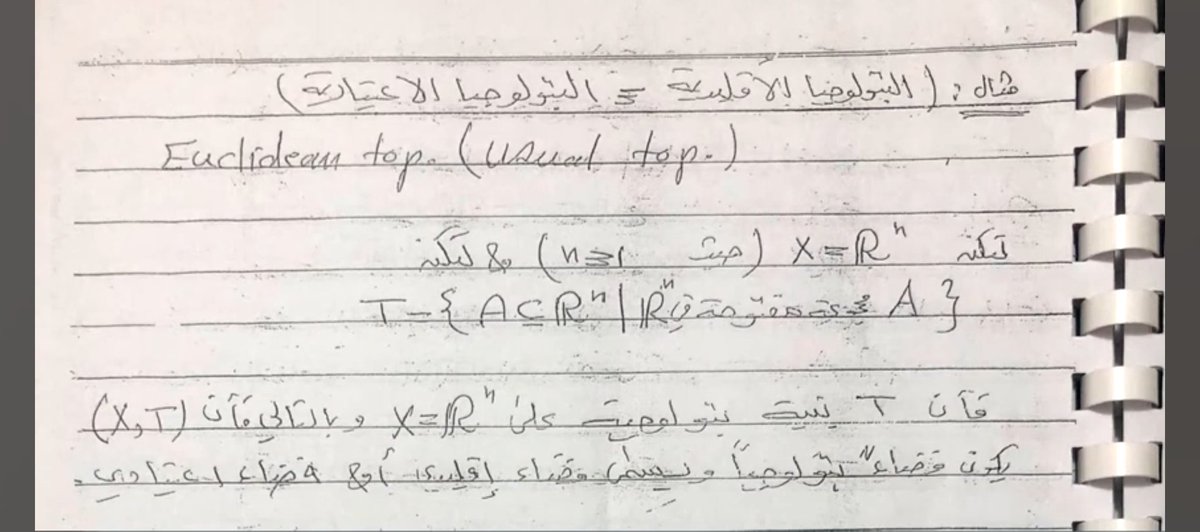 مثال : ( التبولوجيا الأقليدية = التبولوجيا الاعتيادية )
Euclidean top. (usual top.)
لتكن X = ℝⁿ (حيث n ≥ 1) & لتكن
T = { A ⊆ ℝⁿ | ℝⁿ مجموعة مفتوحة في A }
فأن T بنية تبولوجية على X = ℝⁿ و بالتالي فأن (X, T)
يكون فضاءً تبولوجياً و يسمى فضاء إقليدي أو فضاء اعتيادي .